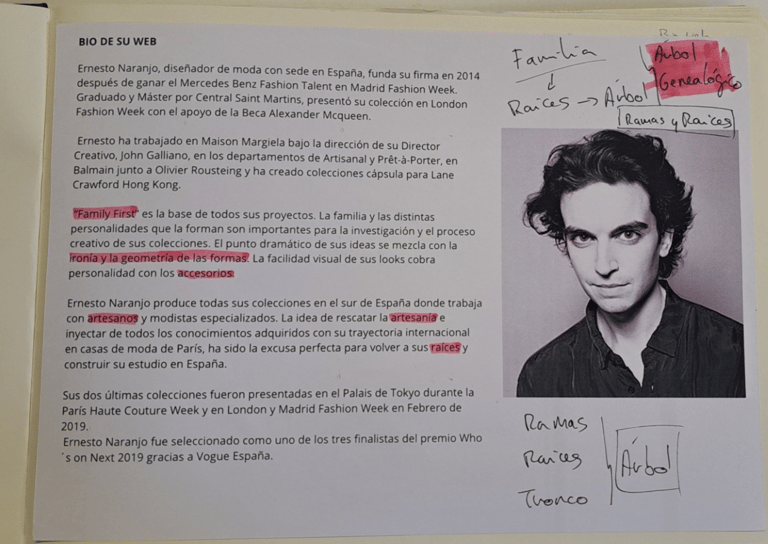 BIO DE SU WEB
Ernesto Naranjo, diseñador de moda con sede en España, funda su firma en 2014
después de ganar el Mercedes Benz Fashion Talent en Madrid Fashion Week.
Graduado y Máster por Central Saint Martins, presentó su colección en London
Fashion Week con el apoyo de la Beca Alexander Mcqueen.
Ernesto ha trabajado en Maison Margiela bajo la dirección de su Director
Creativo, John Galliano, en los departamentos de Artisanal y Prêt-à-Porter, en
Balmain junto a Olivier Rousteing y ha creado colecciones cápsula para Lane
Crawford Hong Kong.
"Family First" es la base de todos sus proyectos. La familia y las distintas
personalidades que la forman son importantes para la investigación y el proceso
creativo de sus colecciones. El punto dramático de sus ideas se mezcla con la
ironía y la geometría de las formas. La facilidad visual de sus looks cobra
personalidad con los accesorios.
Ernesto Naranjo produce todas sus colecciones en el sur de España donde trabaja
con artesanos y modistas especializados. La idea de rescatar la artesanía e
inyectar de todos los conocimientos adquiridos con su trayectoria internacional
en casas de moda de París, ha sido la excusa perfecta para volver a sus raíces y
construir su estudio en España.
Sus dos últimas colecciones fueron presentadas en el Palais de Tokyo durante la
París Haute Couture Week y en London y Madrid Fashion Week en Febrero de
2019.
Ernesto Naranjo fue seleccionado como uno de los tres finalistas del premio Who
´s on Next 2019 gracias a Vogue España.
Familia
Raíces → Árbol
Árbol
Genealógico
Ramas y Raíces
Ramas
Raíces
Tronco
Árbol